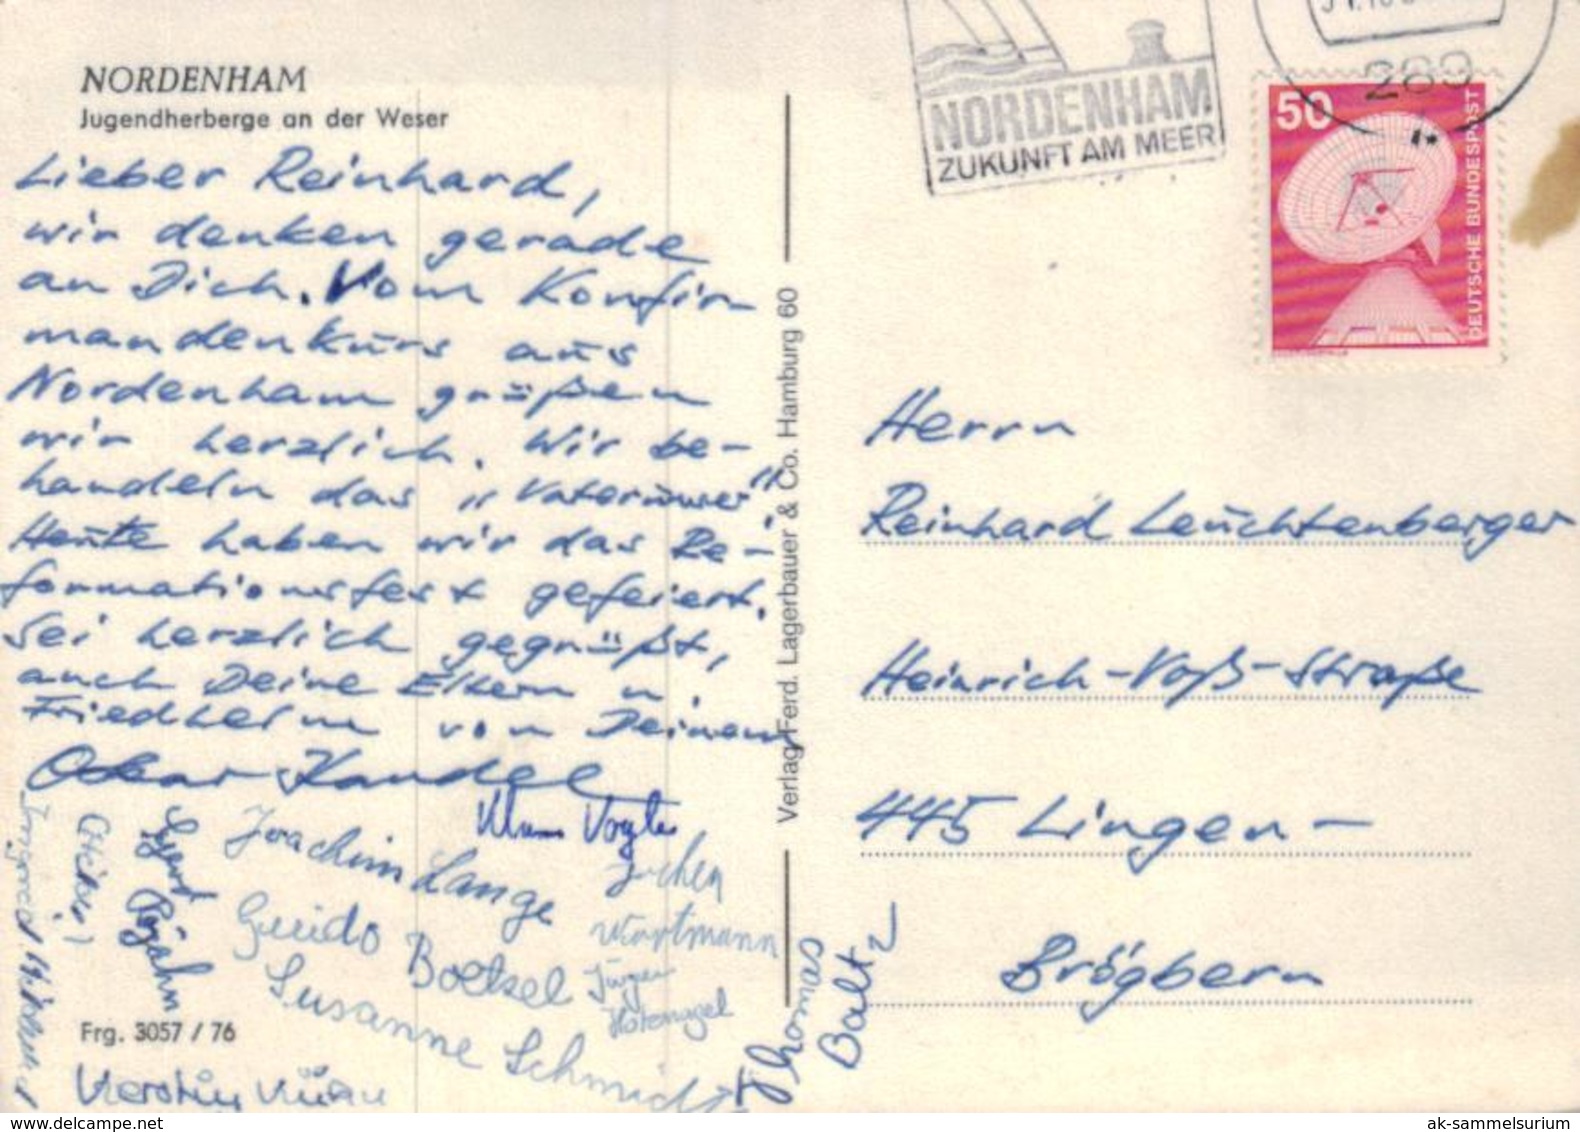 NORDENHAM
Jugendherberge an der Weser
Lieber Reinhard,
wir denken gerade
an Dich. Vom Konfir-
mandenkurs aus
Nordenham grüßen
wir herzlich. Wir be-
handeln das „Vaterunser".
Heute haben wir das Re-
formationsfest gefeiert.
Sei herzlich gegrüßt,
auch Deine Eltern u.
Friedhelm von Deinem
Joachim Lange
Klaus Vogte
Jochen
Wortmann
Guido Boetzel
Jürgen
Susanne Schmidt
Thomas
Baltz
Frg. 3057 / 76
Kerstin
Verlag Ferd. Lagerbauer & Co. Hamburg 60
NORDENHAM
ZUKUNFT AM MEER
289
50
DEUTSCHE BUNDESPOST
Herrn
Reinhard Leuchtenberger
Heinrich-Voß-Straße
445 Lingen-
Brögbern
ak-sammelsurium.com